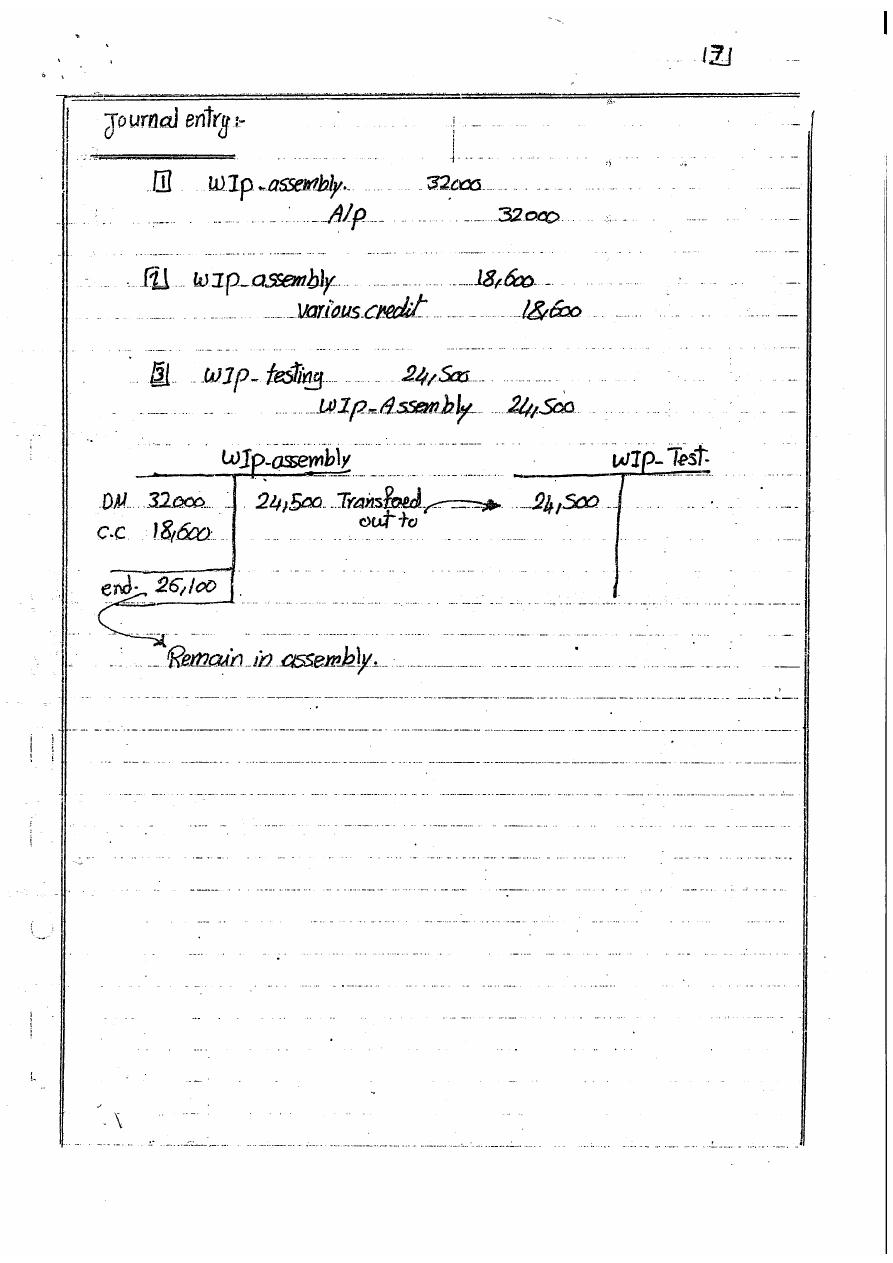 171
Journal entry:-
1 WIP-assembly. 32000
A/p 32000
2 WIP-assembly 18,600
various credit 18,600
3 WIP- testing 24,500
WIP-Assembly 24,500
WIP-assembly WIP- Test.
DM 32000 24,500 Transfaed 24,500
C.C 18,600 out to
end. 26,100
Remain in assembly.